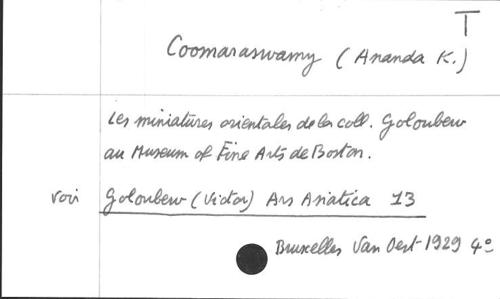 T
Coomaraswamy (Ananda K.)
Les miniatures orientales de la coll. Goloubew
au Museum of Fine Arts de Boston.
voir Goloubew (Victor) Ars Asiatica 13
Bruxelles Van Oest 1929 4º